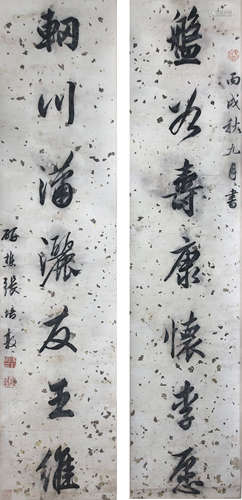 盤谷壽康懷李愿
丙戌秋九月書
輞川瀟灑友王維
研樵張培敦